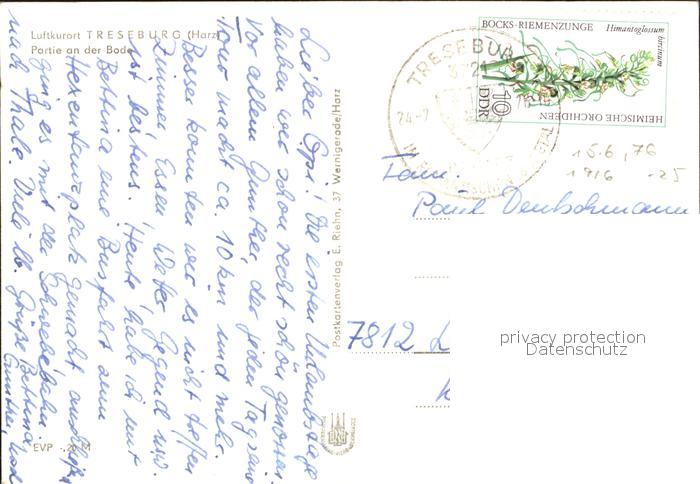 Luftkurort TRESEBURG (Harz)
Partie an der Bode
Lieber Opi! Die ersten Urlaubstage
haben wir schon recht schön genossen.
Vor allem Günther, der jeden Tag seine
Tour macht ca. 10 km und mehr.
Besser konnten wir es nicht treffen
Zimmer, Essen, Wetter, Gegend usw.
ist bestens. Heute habe ich mit
Bettina eine Busfahrt zum
Hexentanzplatz gemacht anschließ.
ging es mit der Schwebebahn
nach Thale. Viele lb. Grüße Bettina,
Günther, und
EVP -,20 M
Postkartenverlag E. Riehn, 37 Wernigerode/Harz
TRESEBURG
3721
24.-7
BOCKS-RIEMENZUNGE
Himantoglossum hircinum
10
DDR
HEIMISCHE ORCHIDEEN
15.6.76
1916 -25
Fam.
Paul Deutschmann
7812 L
privacy protection
Datenschutz